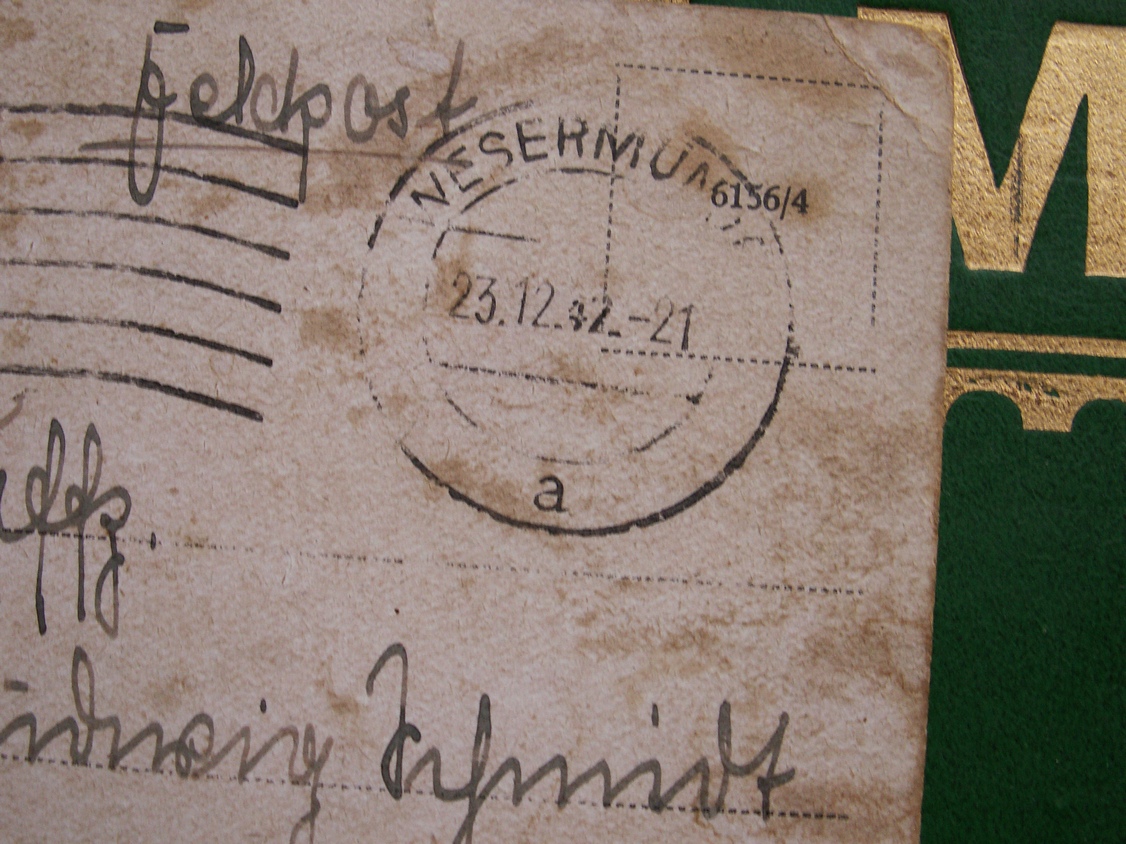 Feldpost
WESERMÜNDE
6156/4
23.12.42.-21
a
Uffz.
Ludwig Schmidt
M